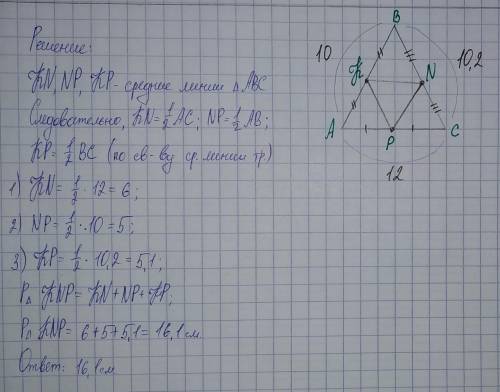 Решение:
KN, NP, KP - средние линии △ ABC
Следовательно, KN = 1/2 AC; NP = 1/2 AB;
KP = 1/2 BC (по св-ву ср. линии тр)
1) KN = 1/2 · 12 = 6;
2) NP = 1/2 · 10 = 5;
3) KP = 1/2 · 10,2 = 5,1;
P△ KNP = KN + NP + KP;
P△ KNP = 6 + 5 + 5,1 = 16,1 см
Ответ: 16,1 см
B
10
10,2
K
N
A
P
C
12